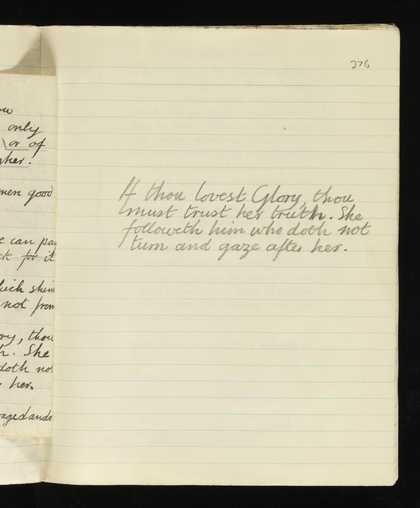 376
If thou lovest Glory, thou
must trust her truth. She
followeth him who doth not
turn and gaze after her.
only
or of
her.
men good
can pay
for it
which shin
not from
thou
She
doth not
her.